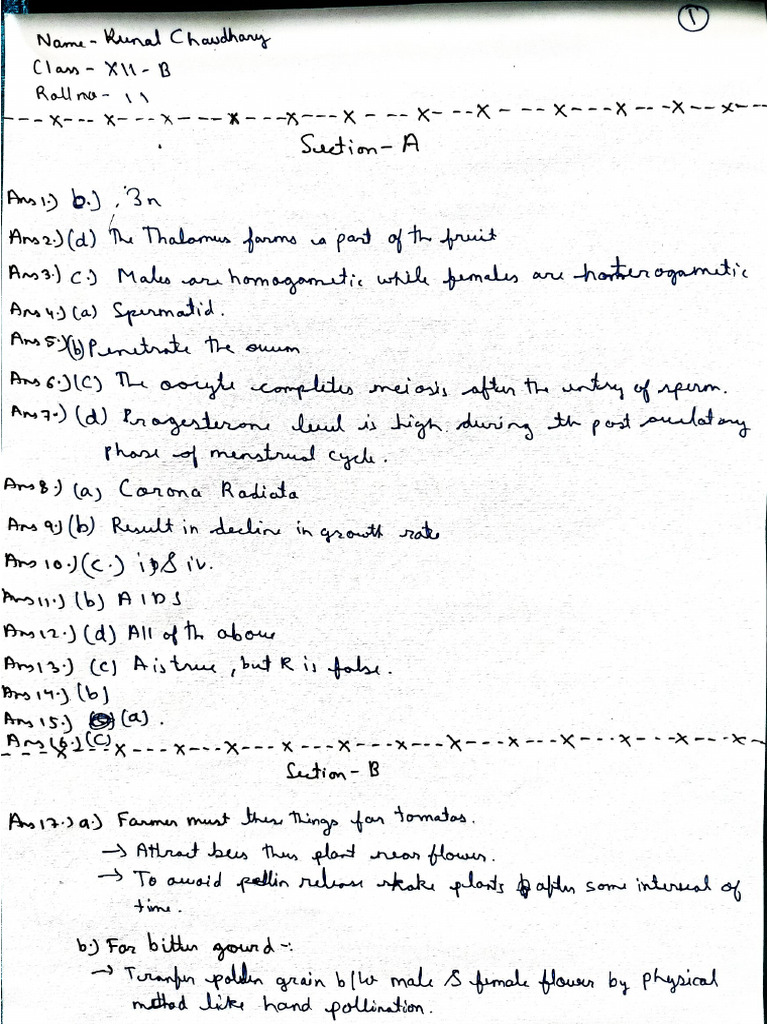 1
Name - Kunal Chaudhary
Class - XII - B
Roll no - 11
---x---x---x---x---x---x---x---x---x---x---x---x---x---
Section - A
Ans 1.) b.) 3n
Ans 2.) (d) The Thalamus forms a part of the fruit
Ans 3.) C.) Males are homogametic while females are heterogametic
Ans 4.) (a) Spermatid.
Ans 5.) (b) Penetrate the ovum
Ans 6.) (C) The oocyte completes meiosis after the entry of sperm.
Ans 7.) (d) Progesterone level is high during th post ovulatory
phase of menstrual cycle.
Ans 8.) (a) Corona Radiata
Ans 9) (b) Result in decline in growth rate
Ans 10.) (C.) i) & iv.
Ans 11.) (b) AIDS
Ans 12.) (d) All of th above
Ans 13.) (C) A is true, but R is false.
Ans 14.) (b)
Ans 15.) (a).
Ans 16.) (C)
---x---x---x---x---x---x---x---x---x---x---x---x---
Section - B
Ans 17.) a.) Farmer must these things for tomatos.
→ Attract bees thus plant near flower.
→ To avoid pollin release shake plants after some interval of
time.
b.) For bitter gourd -:
→ Transfer pollen grain b/w male & female flower by physical
method like hand pollination.